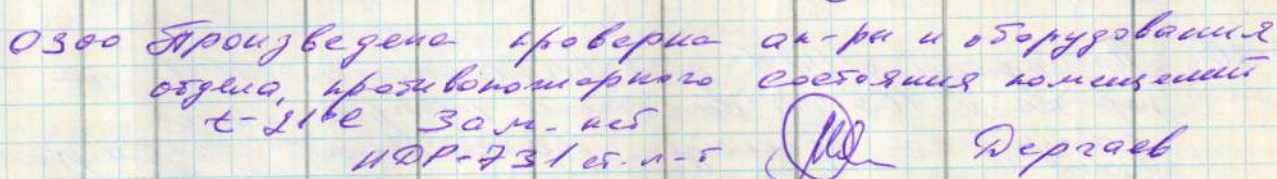 0300 Произведена проверка ап-ры и оборудования
отдела, противопожарного состояния помещений
t-21°C Зам. нет
НДР-731 ст. л-т Дергаев